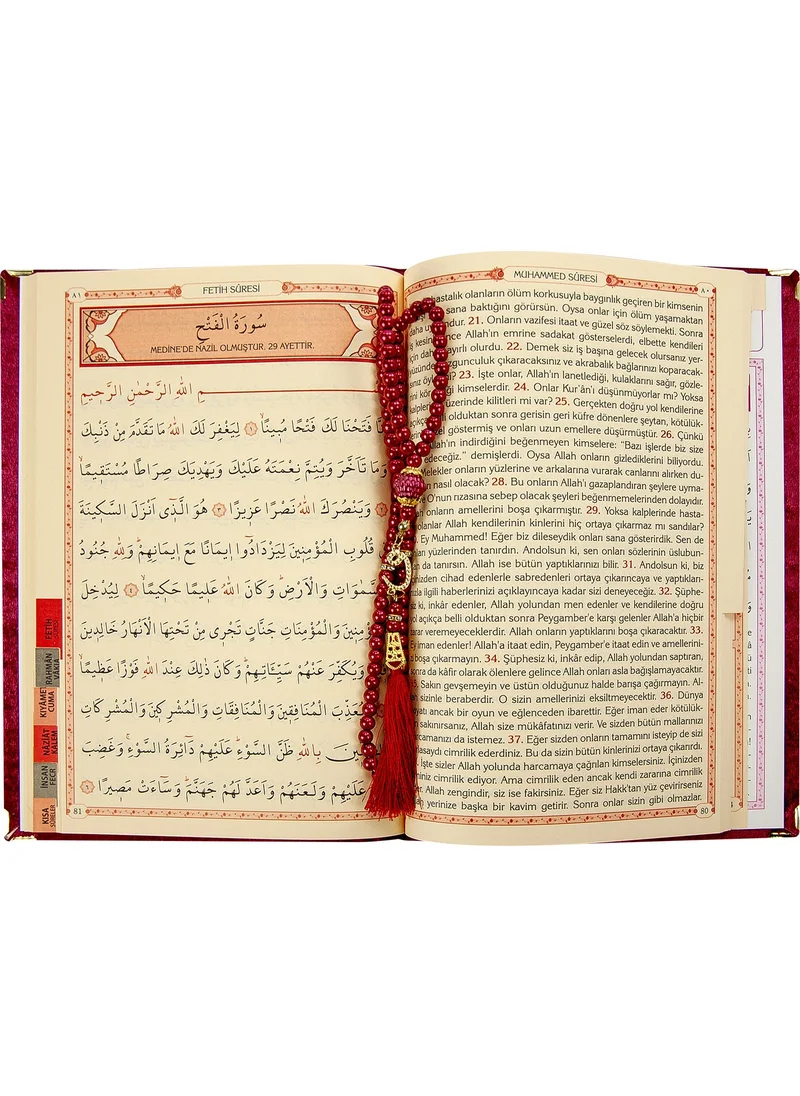 MUHAMMED SÛRESİ
٨٠
hastalık olanların ölüm korkusuyla baygınlık geçiren bir kimsenin
sana baktığını görürsün. Oysa onlar için ölüm yaşamaktan
21. Onların vazifesi itaat ve güzel söz söylemekti. Sonra
Allah'ın emrine sadakat gösterselerdi, elbette kendileri
için daha hayırlı olurdu. 22. Demek siz iş başına gelecek olursanız yer-
yüzünde bozgunculuk çıkaracaksınız ve akrabalık bağlarınızı koparacak-
öyle mi? 23. İşte onlar, Allah'ın lanetlediği, kulaklarını sağır, gözle-
kimselerdir. 24. Onlar Kur'ân'ı düşünmüyorlar mı? Yoksa
kalpleri üzerinde kilitleri mi var? 25. Gerçekten doğru yol kendilerine
olduktan sonra gerisin geri küfre dönenlere şeytan, kötülük-
göstermiş ve onları uzun emellere düşürmüştür. 26. Çünkü
Allah'ın indirdiğini beğenmeyen kimselere: "Bazı işlerde biz size
edeceğiz." demişlerdi. Oysa Allah onların gizlediklerini biliyordu.
Melekler onların yüzlerine ve arkalarına vurarak canlarını alırken du-
nasıl olacak? 28. Bu onların Allah'ı gazaplandıran şeylere uyma-
O'nun rızasına sebep olacak şeyleri beğenmemelerinden dolayıdır.
onların amellerini boşa çıkarmıştır. 29. Yoksa kalplerinde hasta-
olanlar Allah kendilerinin kinlerini hiç ortaya çıkarmaz mı sandılar?
Ey Muhammed! Eğer biz dileseydik onları sana gösterirdik. Sen de
yüzlerinden tanırdın. Andolsun ki, sen onları sözlerinin üslubun-
da tanırsın. Allah ise bütün yaptıklarınızı bilir. 31. Andolsun ki, biz
içinizden cihad edenlerle sabredenleri ortaya çıkarıncaya ve yaptıkları-
ilgili haberlerinizi açıklayıncaya kadar sizi deneyeceğiz. 32. Şüphe-
ki, inkâr edenler, Allah yolundan men edenler ve kendilerine doğru
açıkça belli olduktan sonra Peygamber'e karşı gelenler Allah'a hiçbir
zarar veremeyeceklerdir. Allah onların yaptıklarını boşa çıkaracaktır. 33.
Ey iman edenler! Allah'a itaat edin, Peygamber'e itaat edin ve amellerini-
boşa çıkarmayın. 34. Şüphesiz ki, inkâr edip, Allah yolundan saptıran,
sonra da kâfir olarak ölenlere gelince Allah onları asla bağışlamayacaktır.
Sakın gevşemeyin ve üstün olduğunuz halde barışa çağırmayın. Al-
sizinle beraberdir. O sizin amellerinizi eksiltmeyecektir. 36. Dünya
ancak bir oyun ve eğlenceden ibarettir. Eğer iman eder kötülük-
sakınırsanız, Allah size mükâfatınızı verir. Ve sizden bütün mallarınızı
istemez. 37. Eğer sizden onların tamamını isteyip de sizi
cimrilik ederdiniz. Bu da sizin bütün kinlerinizi ortaya çıkarırdı.
İşte sizler Allah yolunda harcamaya çağrılan kimselersiniz. İçinizden
cimrilik ediyor. Ama cimrilik eden ancak kendi zararına cimrilik
Allah zengindir, siz ise fakirsiniz. Eğer siz Hakk'tan yüz çevirirseniz
yerinize başka bir kavim getirir. Sonra onlar sizin gibi olmazlar.
80
FETİH SÛRESİ
٨١
سُورَةُ الْفَتْحِ
MEDİNE'DE NAZİL OLMUŞTUR. 29 AYETTİR.
ـمِ اللّٰهِ الرَّحْمٰنِ الرَّحِيمِ
فَتَحْنَا لَكَ فَتْحًا مُبِينًا ﴿١﴾ لِيَغْفِرَ لَكَ اللّٰهُ مَا تَقَدَّمَ مِنْ ذَنْبِكَ
وَمَا تَاَخَّرَ وَيُتِمَّ نِعْمَتَهُ عَلَيْكَ وَيَهْدِيَكَ صِرَاطًا مُسْتَقِيمًا
وَيَنْصُرَكَ اللّٰهُ نَصْرًا عَزِيزًا ﴿٣﴾ هُوَ الَّذٖٓي اَنْزَلَ السَّكِينَةَ
قُلُوبِ الْمُؤْمِنِينَ لِيَزْدَادُٓوا اِيمَانًا مَعَ اِيمَانِهِمْ وَلِلّٰهِ جُنُودُ
السَّمٰوَاتِ وَالْاَرْضِ وَكَانَ اللّٰهُ عَلِيمًا حَكِيمًا ﴿٤﴾ لِيُدْخِلَ
الْمُؤْمِنِينَ وَالْمُؤْمِنَاتِ جَنَّاتٍ تَجْرِي مِنْ تَحْتِهَا الْاَنْهَارُ خَالِدِينَ
وَيُكَفِّرَ عَنْهُمْ سَيِّـَٔاتِهِمْ وَكَانَ ذٰلِكَ عِنْدَ اللّٰهِ فَوْزًا عَظِيمًا
وَيُعَذِّبَ الْمُنَافِقِينَ وَالْمُنَافِقَاتِ وَالْمُشْرِكِينَ وَالْمُشْرِكَاتِ
بِاللّٰهِ ظَنَّ السَّوْءِ عَلَيْهِمْ دَٓائِرَةُ السَّوْءِ وَغَضِبَ
عَلَيْهِمْ وَلَعَنَهُمْ وَاَعَدَّ لَهُمْ جَهَنَّمَ وَسَٓاءَتْ مَصِيرًا ﴿٦﴾
81
FETİH
RAHMÂN
VÂKIA
KIYÂME
CUMA
NÂZİÂT
KALEM
İNSAN
FECR
KISA
SÛRELER